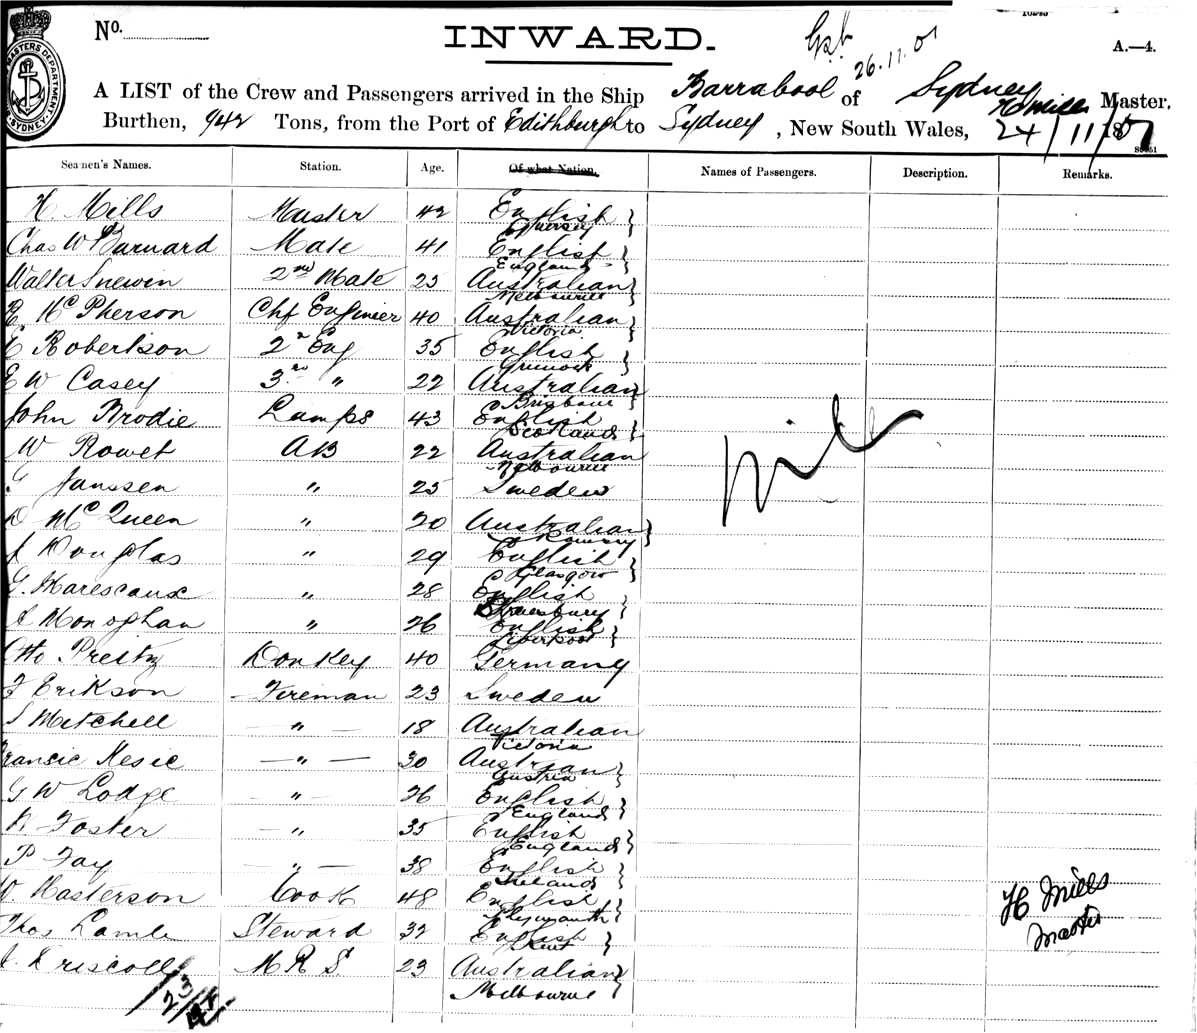 No.
INWARD.
26.11.01
A.—4.
MASTERS DEPARTMENT SYDNEY
A LIST of the Crew and Passengers arrived in the Ship Barrabool of Sydney H Mills Master,
Burthen, 942 Tons, from the Port of Edithburgh to Sydney, New South Wales, 24/11/01
Seamen's Names. Station. Age. Of what Nation. Names of Passengers. Description. Remarks.
H. Mills Master 42 English
Guernsey
Chas W Barnard Mate 41 English
England
Walter Snewin 2nd Mate 23 Australian
Melbourne
McPherson Chf Engineer 40 Australian
Victoria
E Robertson 2nd Eng 35 English
Greenock
E W Casey 3rd " 22 Australian
Brisbane
John Brodie Lamps 43 English
Scotland
W Rowet AB 22 Australian
Melbourne
Janssen " 25 Sweden
D McQueen " 20 Australian
J Douglas " 29 English
Glasgow
G. Marescaux " 28 English
J Monoghan " 26 English
Liverpool
Otto Preitz Donkey 40 Germany
F Erikson Fireman 23 Sweden
S Mitchell — " — 18 Australian
Victoria
Francic Kesic — " — 30 Austrian
Austria
G W Lodge — " — 26 English
England
Foster — " 35 English
England
P Fay — " — 38 English
Ireland
W. Masterson Cook 48 English
Plymouth
Thos Lamb Steward 32 English
Kent
J. Driscoll M R S. 23 Australian
Melbourne
Nil
H Mills
Master
23